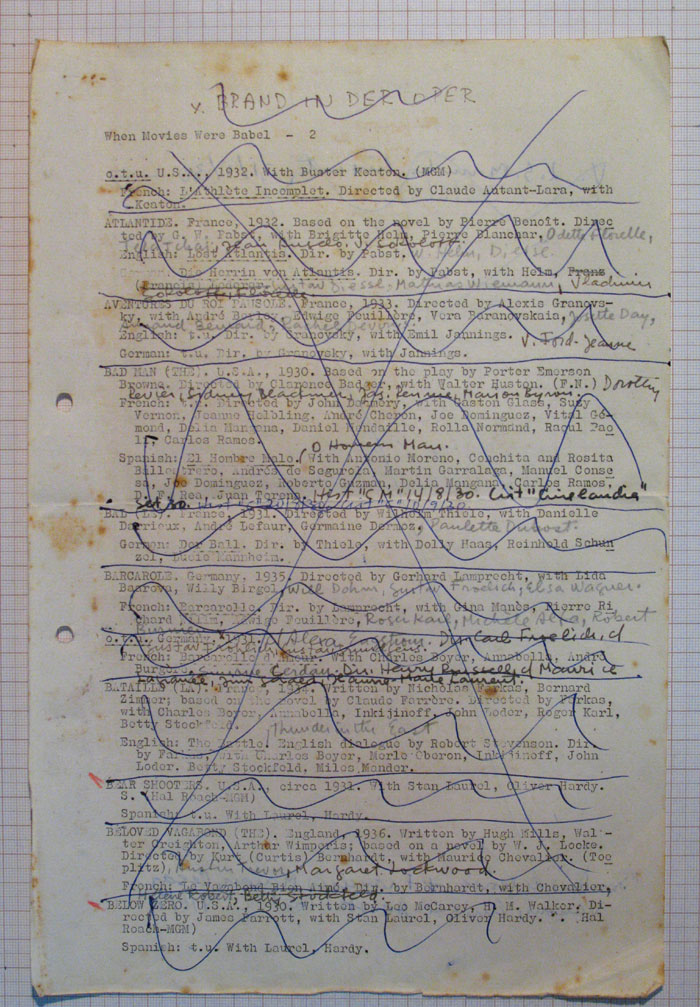 v. BRAND IN DER OPER
When Movies Were Babel - 2
o.t.u. U.S.A., 1932. With Buster Keaton. (MGM)
French: L'Athlète Incomplet. Directed by Claude Autant-Lara, with
Keaton.
ATLANTIDE. France, 1932. Based on the novel by Pierre Benoît. Direc
ted by G. W. Pabst, with Brigitte Helm, Pierre Blanchar, Odette Florelle,
Jean Angelo, V. Sokoloff.
English: Lost Atlantis. Dir. by Pabst.
German: Die Herrin von Atlantis. Dir. by Pabst, with Helm, Franz
Gustav Diessl, Mathias Wiemann, Vladimir
Sokoloff
AVENTURES DU ROI PAUSOLE. France, 1933. Directed by Alexis Granovs-
ky, with André Berley, Edwige Feuillère, Vera Baranovskaia, Josette Day,
Armand Bernard,
English: t.u. Dir. by Granovsky, with Emil Jannings.
German: t.u. Dir. by Granovsky, with Jannings.
BAD MAN (THE). U.S.A., 1930. Based on the play by Porter Emerson
Browne. Directed by Clarence Badger, with Walter Huston. (F.N.) Dorothy
Revier, Sydney Blackmer, Jas. Rennie, Marion Byron.
French: t.u. Directed by John Daumery, with Gaston Glass, Suzy
Vernon, Jeanne Helbling, André Cheron, Joe Dominguez, Vital Ge-
mond, Delia Magana, Daniel Mendaille, Rolla Normand, Raoul Pao
li, Carlos Ramos.
O Homem Mau.
Spanish: El Hombre Malo. With Antonio Moreno, Conchita and Rosita
Ballestrero, Andrés de Segurola, Martin Garralaga, Manuel Conse
sa, Joe Dominguez, Roberto Guzman, Delia Magana, Carlos Ramos,
D. F. Rea, Juan Torena. Hist "C M" 14/8/30. List "Cinelandia"
Set/30.
BAL (LE). France, 1931. Directed by Wilhelm Thiele, with Danielle
Darrieux, André Lefaur, Germaine Dermoz, Paulette Dubost.
German: Der Ball. Dir. by Thiele, with Dolly Haas, Reinhold Schun
zel, Lucie Mannheim.
BARCAROLE. Germany, 1935. Directed by Gerhard Lamprecht, with Lida
Baarova, Willy Birgel, Will Dohm, Gustav Froelich, Elsa Wagner.
French: Barcarolle. Dir. by Lamprecht, with Gina Manès, Pierre Ri
chard Willm, Edwige Feuillère, Roger Karl, Michele Alfa, Robert
o.t.u. Germany, Dir. Carl Froelich, c/
Gustav Froelich
French: Barcarolle d'Amour. With Charles Boyer, Annabella, André
Burgère, Dir. Harry c/ Maurice
BATAILLE (LA). France, Written by Nicholas Farkas, Bernard
Zimmer; based on the novel by Claude Farrère. Directed by Farkas,
with Charles Boyer, Annabella, Inkijinoff, John Loder, Roger Karl,
Betty Stockfeld.
Thunder in the East
English: The Battle. English dialogue by Robert Stevenson. Dir.
by Farkas, with Charles Boyer, Merle Oberon, Inkijinoff, John
Loder, Betty Stockfeld, Miles Mander.
BEAR SHOOTERS. U.S.A., circa 1931. With Stan Laurel, Oliver Hardy.
S. (Hal Roach-MGM)
Spanish: t.u. With Laurel, Hardy.
BELOVED VAGABOND (THE). England, 1936. Written by Hugh Mills, Wal-
ter Creighton, Arthur Wimperis; based on a novel by W. J. Locke.
Directed by Kurt (Curtis) Bernhardt, with Maurice Chevalier. (Toe
plitz), Margaret Lockwood.
French: Le Vagabond Bien Aimé. Dir. by Bernhardt, with Chevalier,
Betty Stockfeld.
BELOW ZERO. U.S.A., 1930. Written by Leo McCarey, H. M. Walker. Di-
rected by James Parrott, with Stan Laurel, Oliver Hardy. (Hal
Roach-MGM)
Spanish: t.u. With Laurel, Hardy.